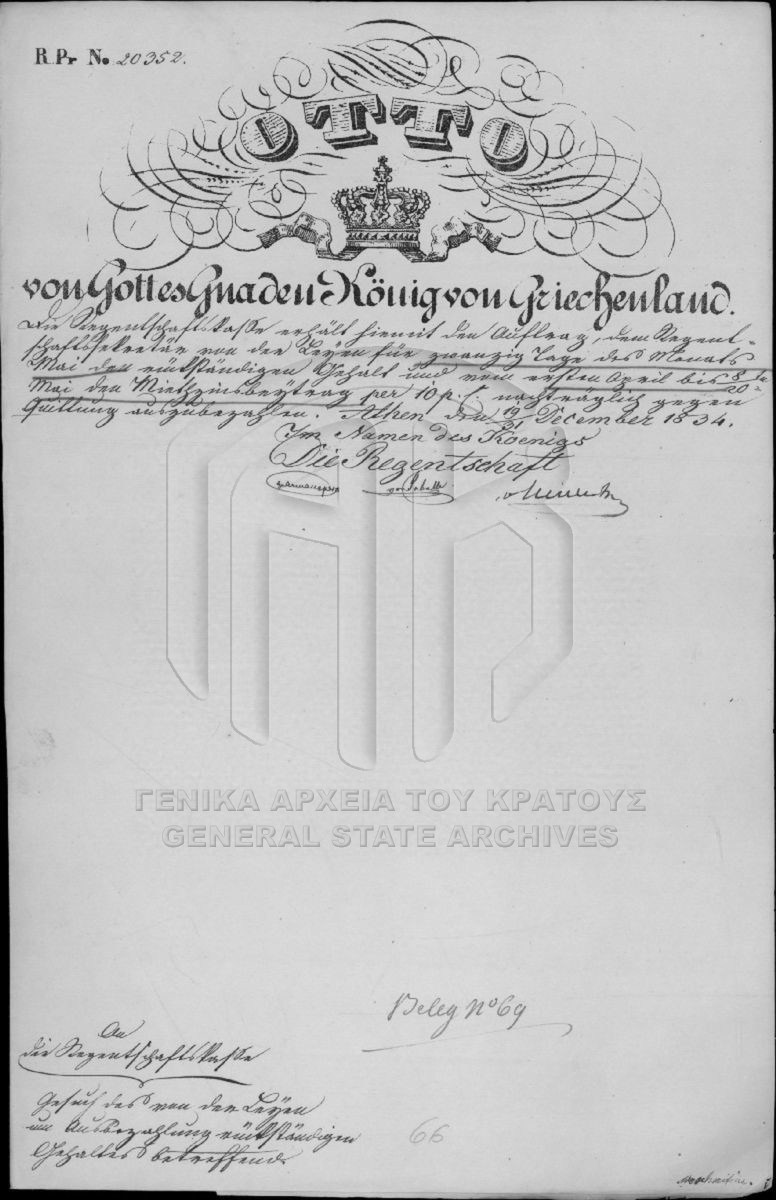 R. Pr No. 20352.
OTTO
von Gottes Gnaden König von Griechenland.
Die Regentschaftskasse erhält hiemit den Auftrag, dem Regent-
schaftssekretär von der Leyen für zwanzig Tage des Monats
Mai den rückständigen Gehalt und vom ersten April bis 8/20ten
Mai den Miethzinsbeytrag per 10 p. C. nachträglich gegen
Quittung auszubezahlen. Athen den 19/31 December 1834.
Im Namen des Koenigs
Die Regentschaft
ΓΕΝΙΚΑ ΑΡΧΕΙΑ ΤΟΥ ΚΡΑΤΟΥΣ
GENERAL STATE ARCHIVES
Beleg No 69
An
die Regentschaftskasse
Gesuch des von der Leyen
um Ausbezahlung rückständigen
Gehaltes betreffend.
66